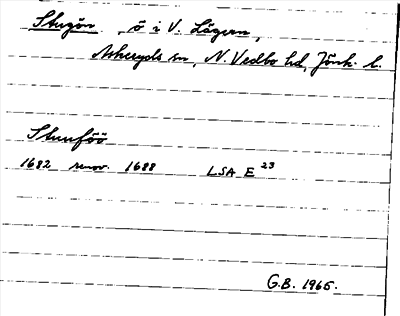 Stugön, ö i V. Lägern,
Askeryds sn, N. Vedbo hd, Jönk. l.
Stuuföö
1682 renov. 1688 LSA E 23
G.B. 1965.